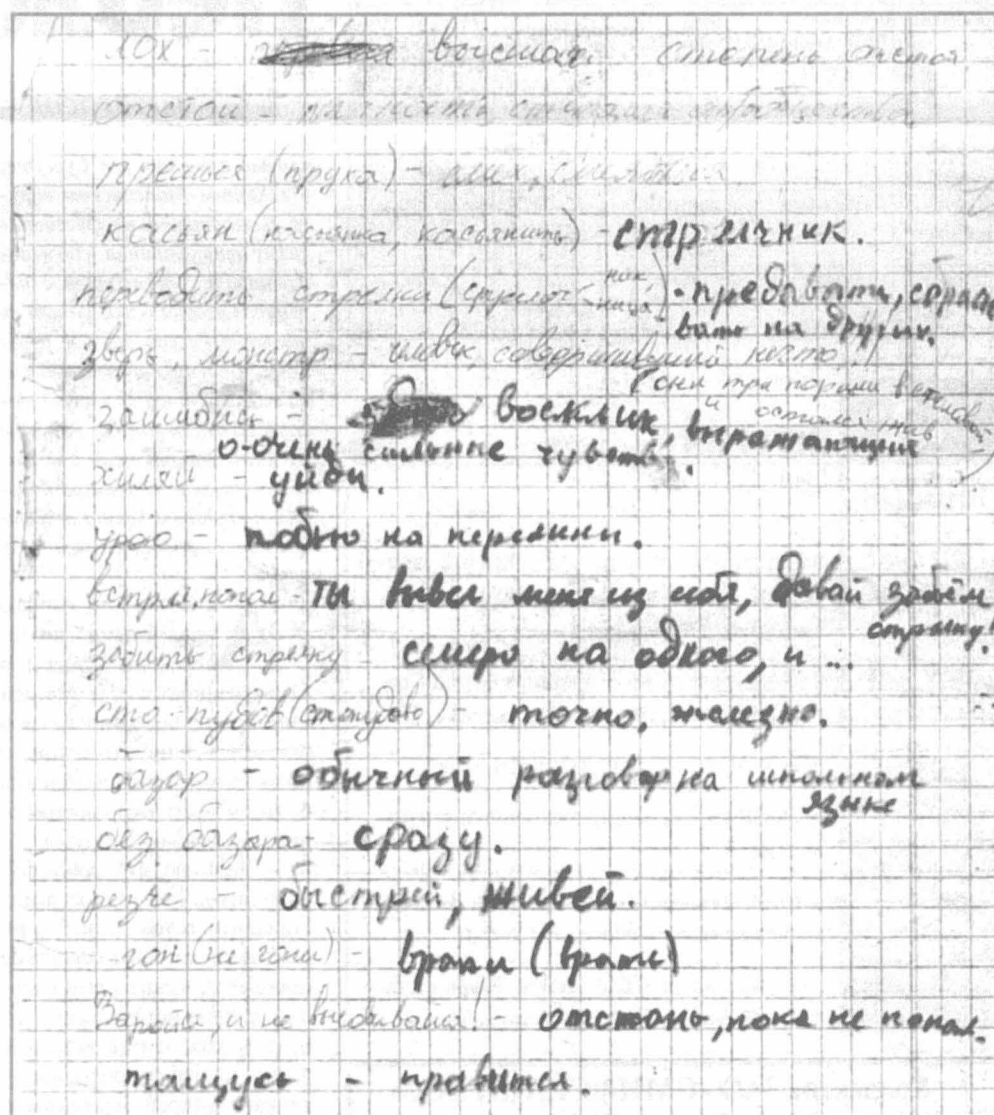 лох - высшая степень отстоя
отстой - личность,
прешься (пруха) -
касьян (касьянка, касьянить) - стрелчник.
переводить стрелки (стрелоч< ник, ница) - предавать, сбрасы
вать на других.
зверь, монстр - совершивший нечто !!
(он три порции
и остался жив
зашибись - восклик, выражающий
о-очень сильные чувств.
хиляй - уйди.
урою - побью на перемени.
встрял, попал - ты вывел меня из себя, давай забьём
стрелку!
забить стрелку - семеро на одного, и ...
сто-пудов (стопудово) - точно, железно.
базар - обычный разговор на школьном
языке
без базара - сразу.
резче - быстрей, живей.
гон (не гони) - враки (врать)
Заройся, и не высовывайся! - отстань, пока не попал.
тащусь - нравится.